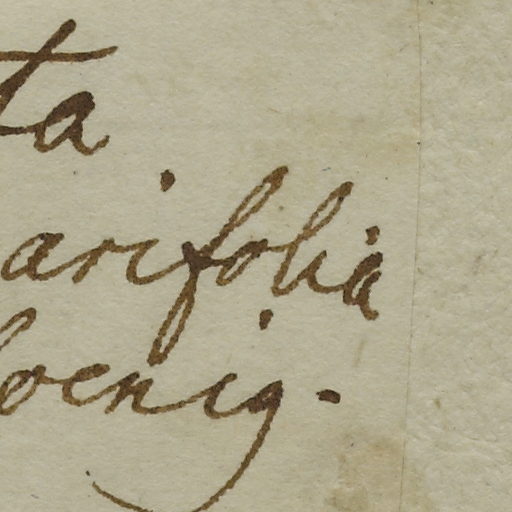 ta
arifolia
oenig.